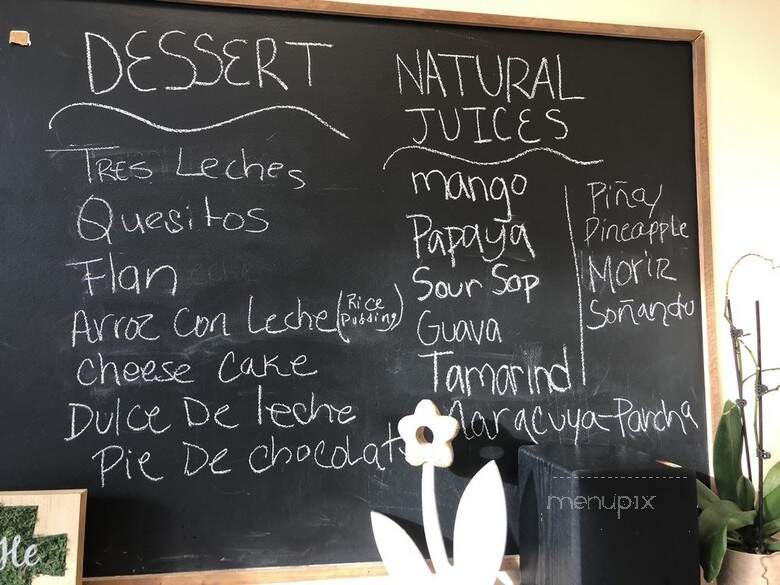 DESSERT
TRES Leches
Quesitos
Flan
Arroz Con Leche (Rice Pudding)
Cheese Cake
Dulce De leche
Pie De chocolat
NATURAL
JUICES
mango
Papaya
Sour Sop
Guava
Tamarind
Maracuya-Parcha
Piña/
Pineapple
Morir
Soñando
menupix